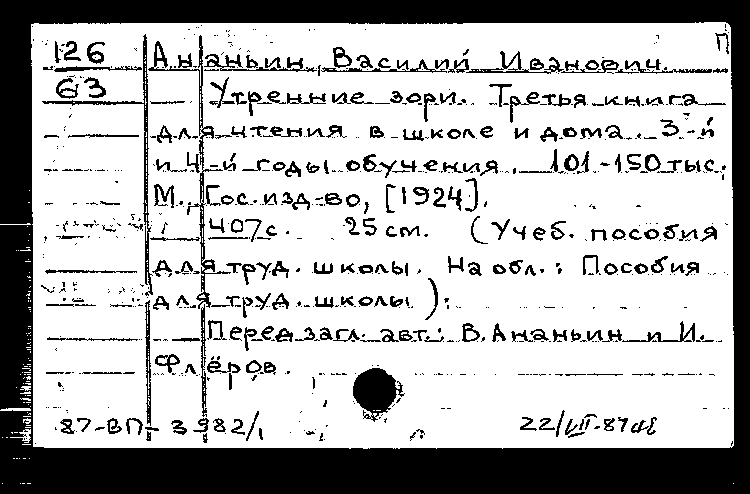 П
126 Ананьин, Василий Иванович.
63 Утренние зори. Третья книга
для чтения в школе и дома. 3-й
и 4-й годы обучения. 101-150 тыс.
М., Гос. изд-во, [1924].
407с. 25см. (Учеб. пособия
для труд. школы. На обл.: Пособия
для труд. школы).
Перед загл. авт.: В. Ананьин и И.
Флёров.
87-ВП-3982/1 22/VII-87